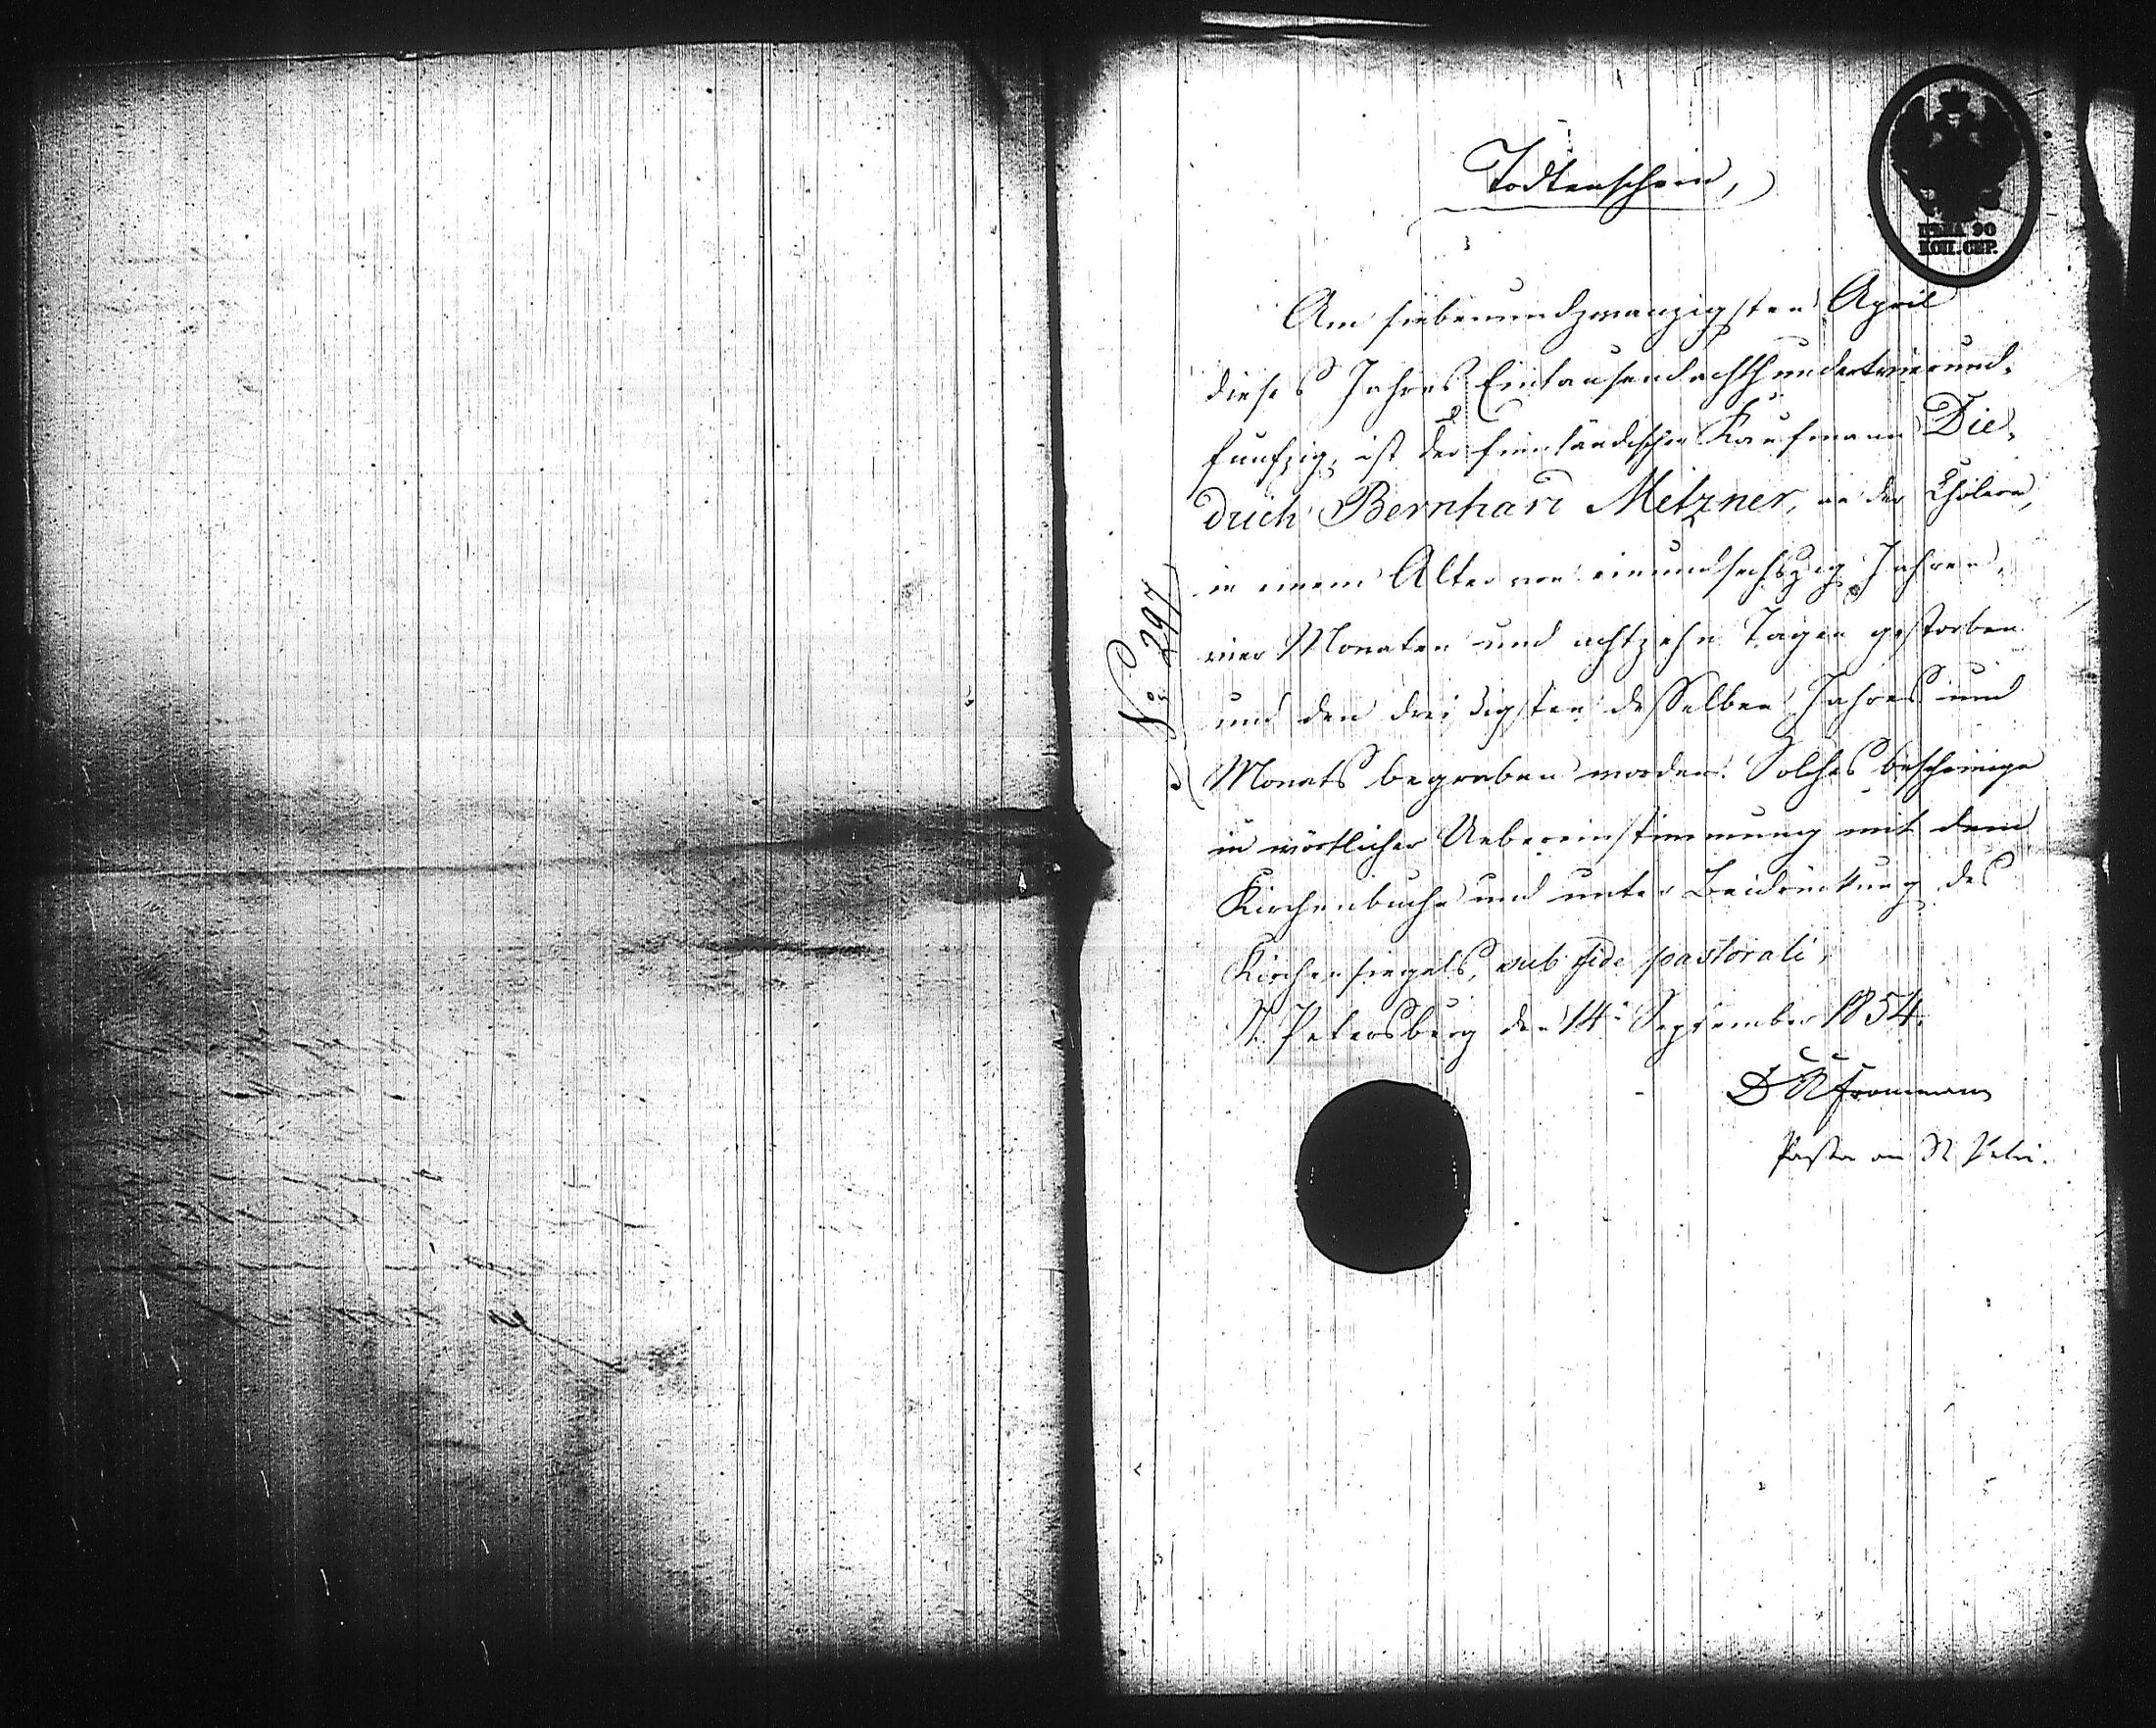 Todtenschein,
ЦѢНА 90
КОП. СЕР.
Am siebenundzwanzigsten April
dieses Jahres Eintausendachthundertvierund-
funfzig, ist der finnländische Kaufmann Die-
drich Bernhard Metzner, an der Cholera,
in einem Alter von einundsechszig Jahren,
vier Monaten und achtzehn Tagen gestorben
und den dreißigsten desselben Jahres und
Monats begraben worden. Solches bescheinige
in wörtlicher Uebereinstimmung mit dem
Kirchenbuche und unter Beidrückung des
Kirchensiegels, sub fide pastorali,
St. Petersburg den 14. September 1854.
No. 297
Frommann
Pastor an St. Petri.